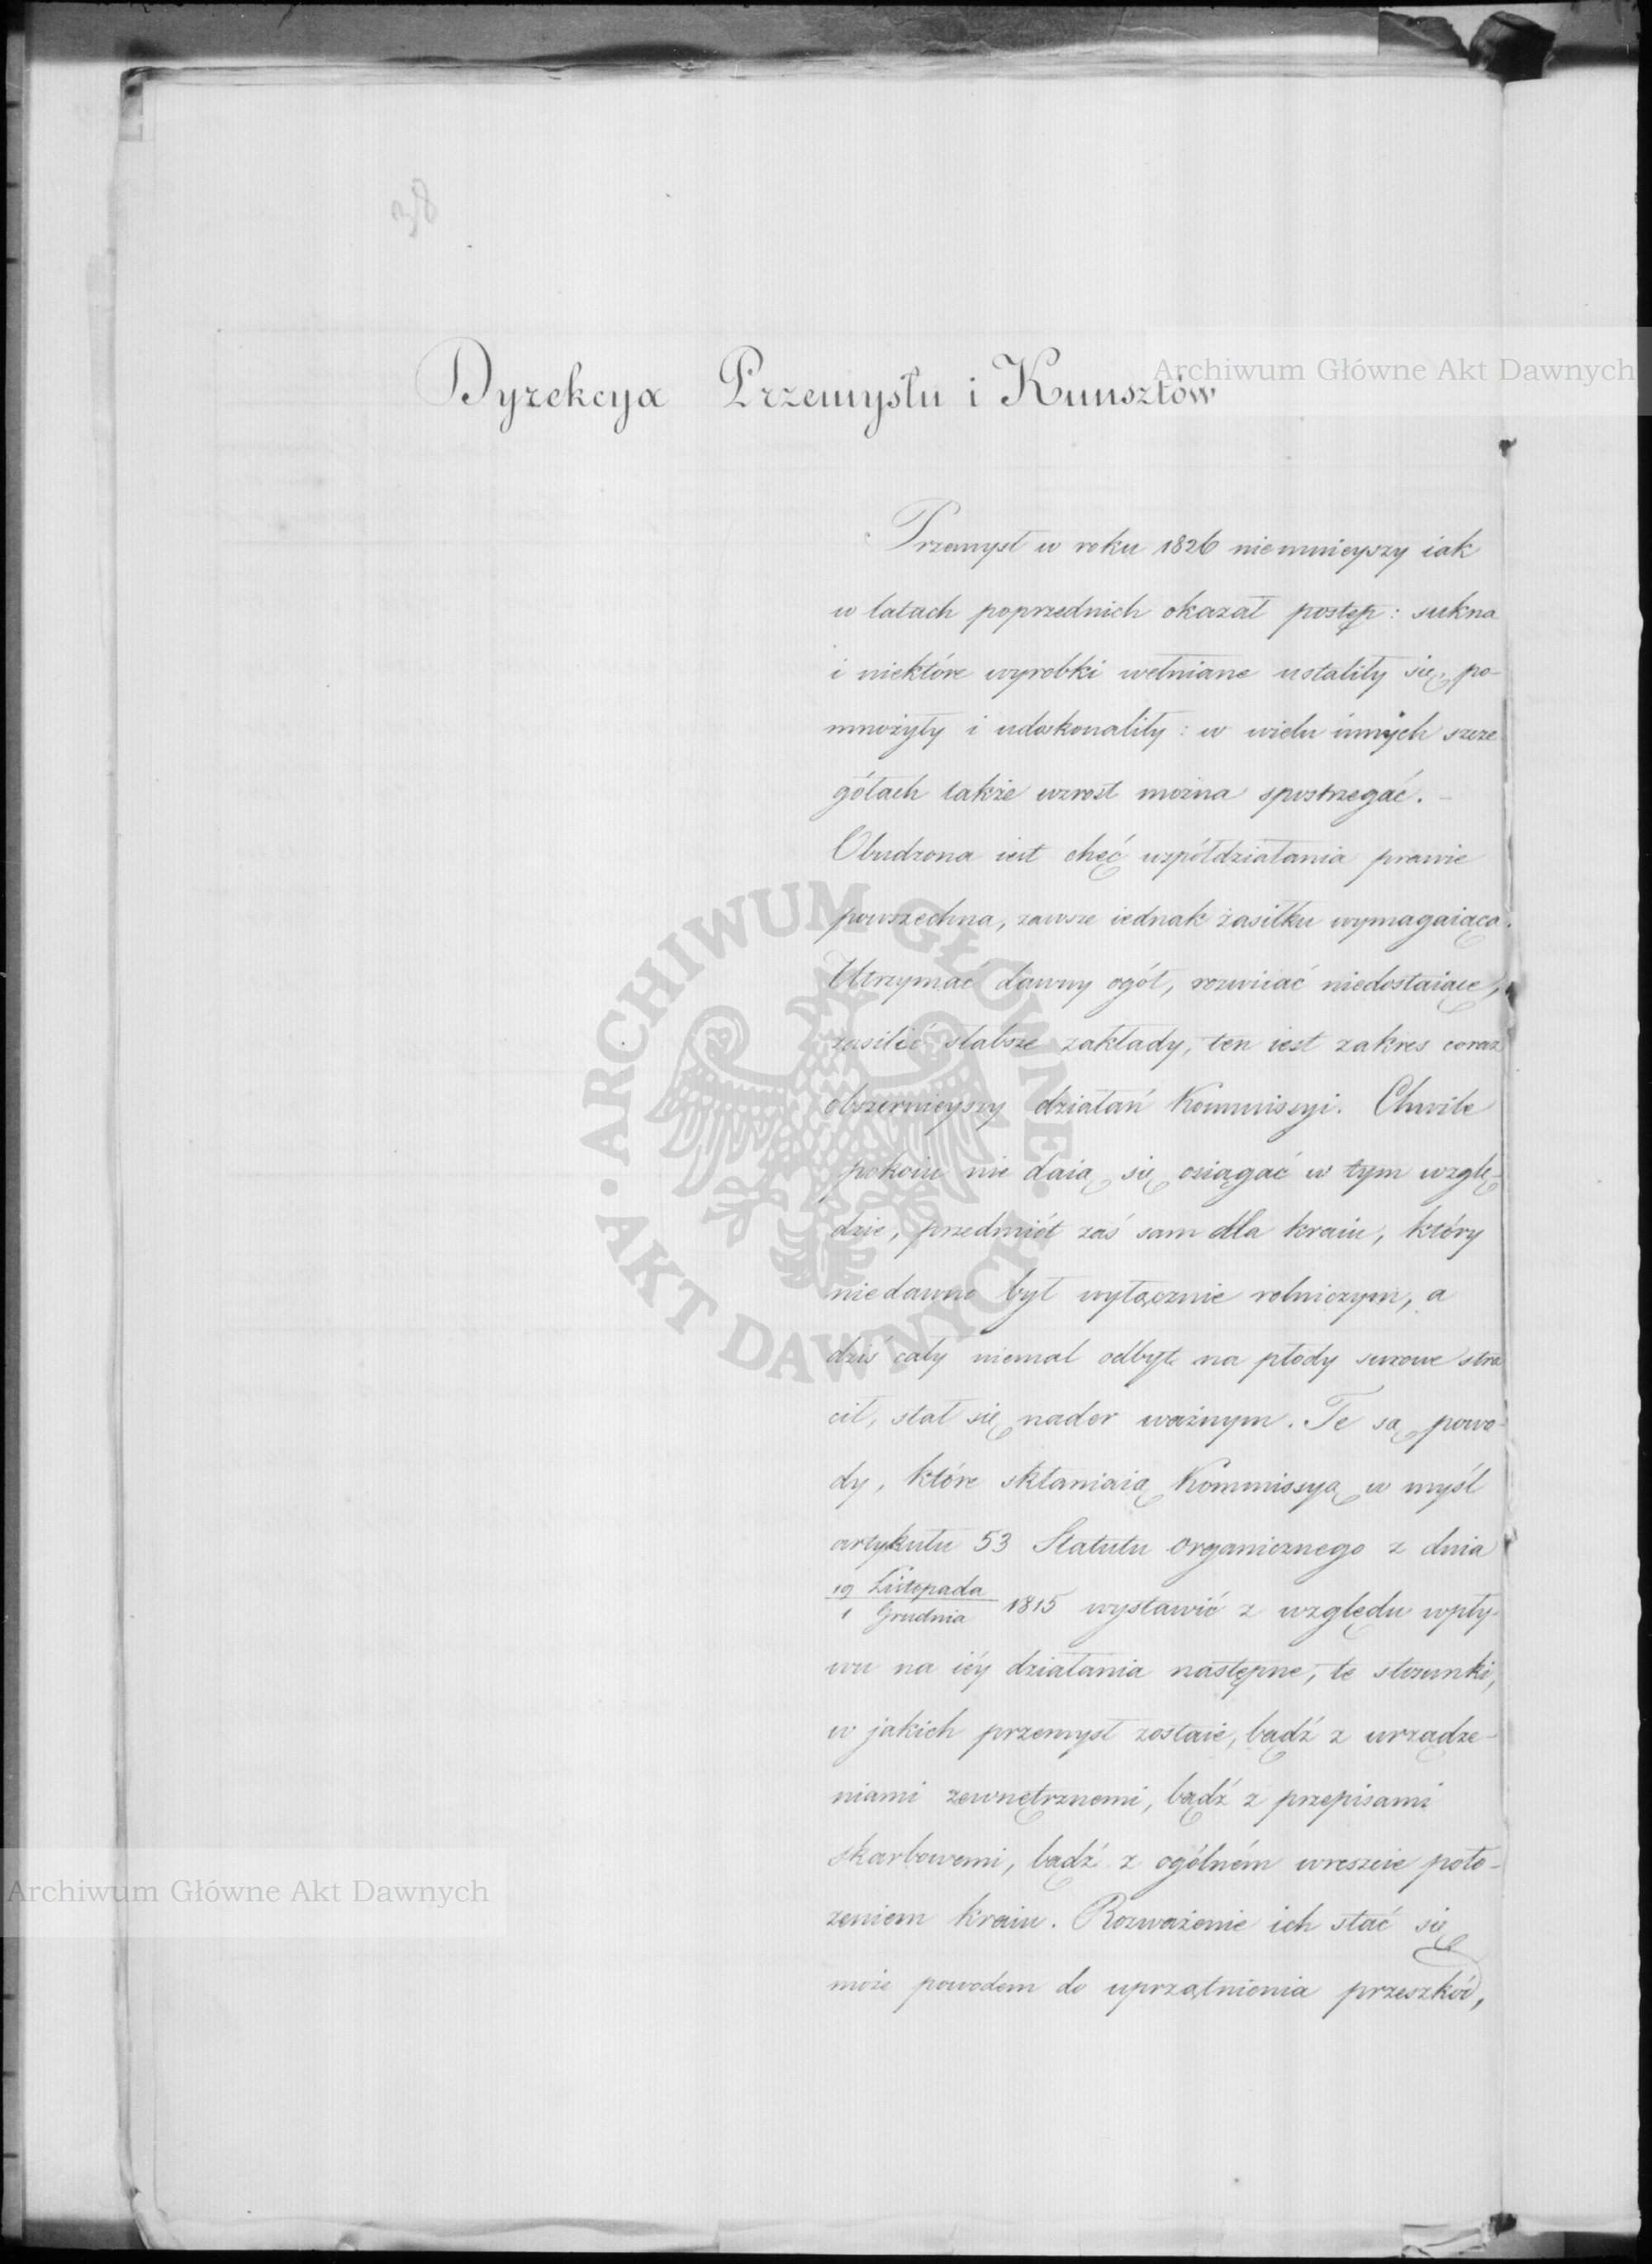 Dyrekcya Przemysłu i Kunsztów
Archiwum Główne Akt Dawnych
Przemysł w roku 1826 niemnieyszy iak
w latach poprzednich okazał postęp: sukna
i niektóre wyrobki wełniane ustaliły się, po-
mnożyły i udoskonaliły: w wielu innych szcze
gółach także wzrost można spostrzegać. -
Obudzona iest chęć współdziałania prawie
powszechna, zawsze iednak zasiłku wymagaiąca.
Utrzymać dawny ogół, rozwiiać niedostaiące,
zasilić słabsze zakłady, ten iest zakres coraz
obszernieyszy działań Kommissyi. Chwile
pokoiu nie daią się osiągać w tym wzglę-
dzie, przedmiót zaś sam dla kraiu, który
niedawno był wyłącznie rolniczym, a
dziś cały niemal odbyt na płody surowe stra
cił, stał się nader ważnym. Te są powo-
dy, które skłaniaią Kommissyą w myśl
artykułu 53 Statutu organicznego z dnia
19 Listopada
1 Grudnia 1815 wystawić z względu wpły-
wu na iéy działania następne, te stosunki,
w jakich przemysł zostaie, bądź z urządze-
niami zewnętrznemi, bądź z przepisami
skarbowemi, bądź z ogólném wreszcie poło-
żeniem kraiu. Rozważenie ich stać się
może powodem do uprzątnienia przeszkód,
ARCHIWUM GŁÓWNE
AKT DAWNYCH
Archiwum Główne Akt Dawnych